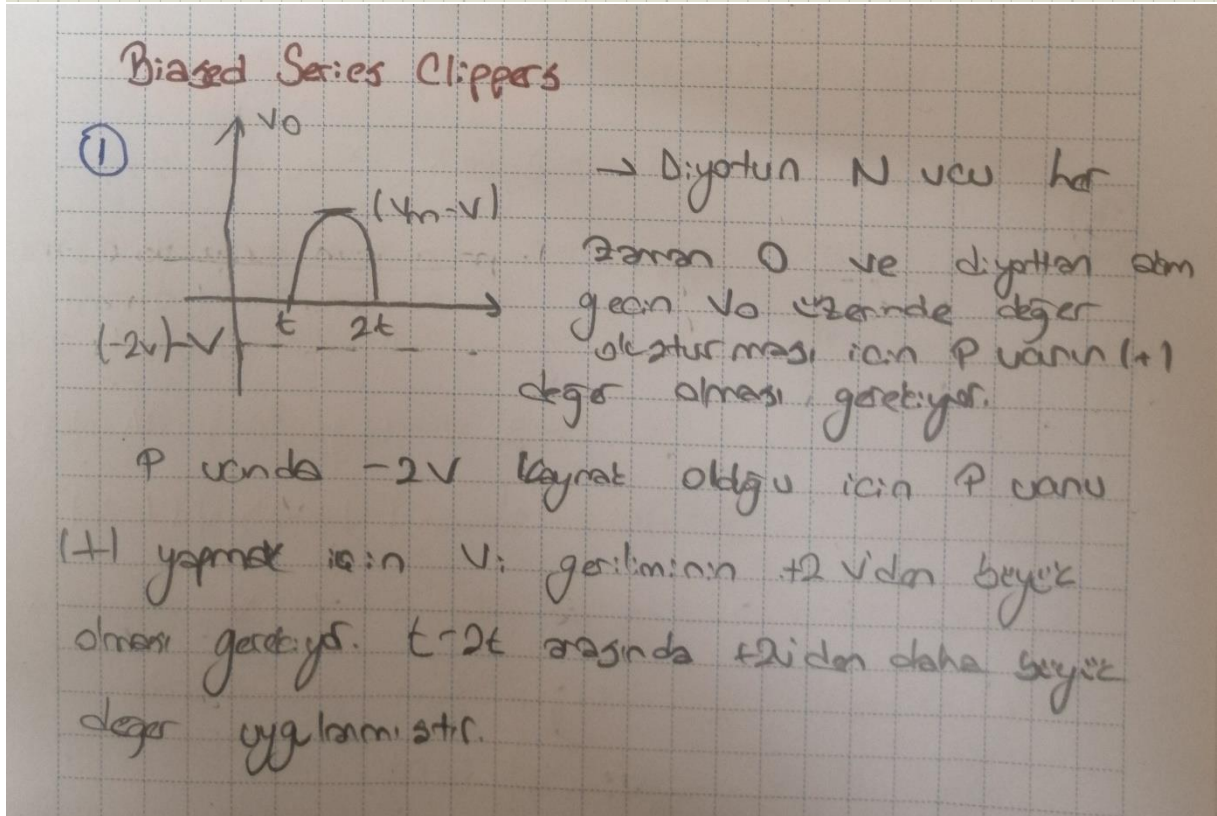 Biased Series Clippers
1
Vo
(Vm-V)
t 2t
(-2v)-V
→ Diyotun N ucu her
zaman 0 ve diyottan akım
geçin Vo üzerinde değer
oluşturması için P ucunun (+)
değer olması gerekiyor.
P ucunda -2V kaynak olduğu için P ucunu
(+) yapmak için Vi geriliminin +2 V'dan büyük
olması gerekiyor. t-2t arasında +2'den daha büyük
değer uygulanmıştır.